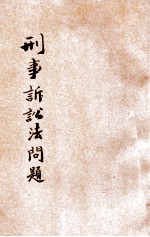 刑事訴訟法問題